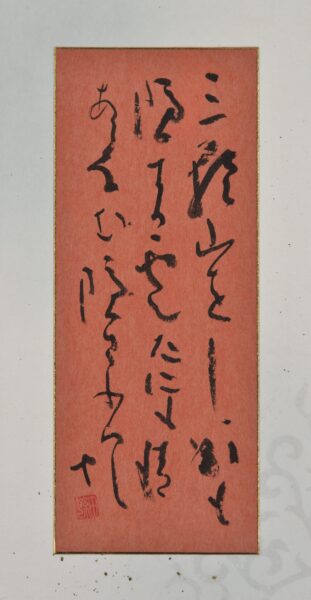 三輪山をしかも
隠すか雲たにも情
あらなむ隠さふへし
や